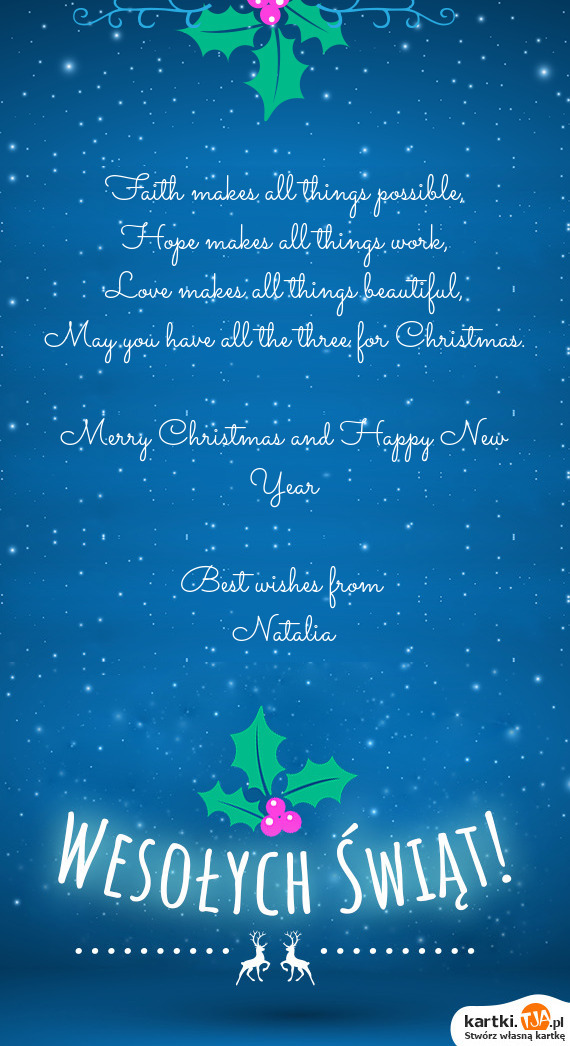 Faith makes all things possible,
Hope makes all things work,
Love makes all things beautiful,
May you have all the three for Christmas.
Merry Christmas and Happy New
Year
Best wishes from
Natalia
Wesołych Świąt!
kartki.TJA.pl
Stwórz własną kartkę